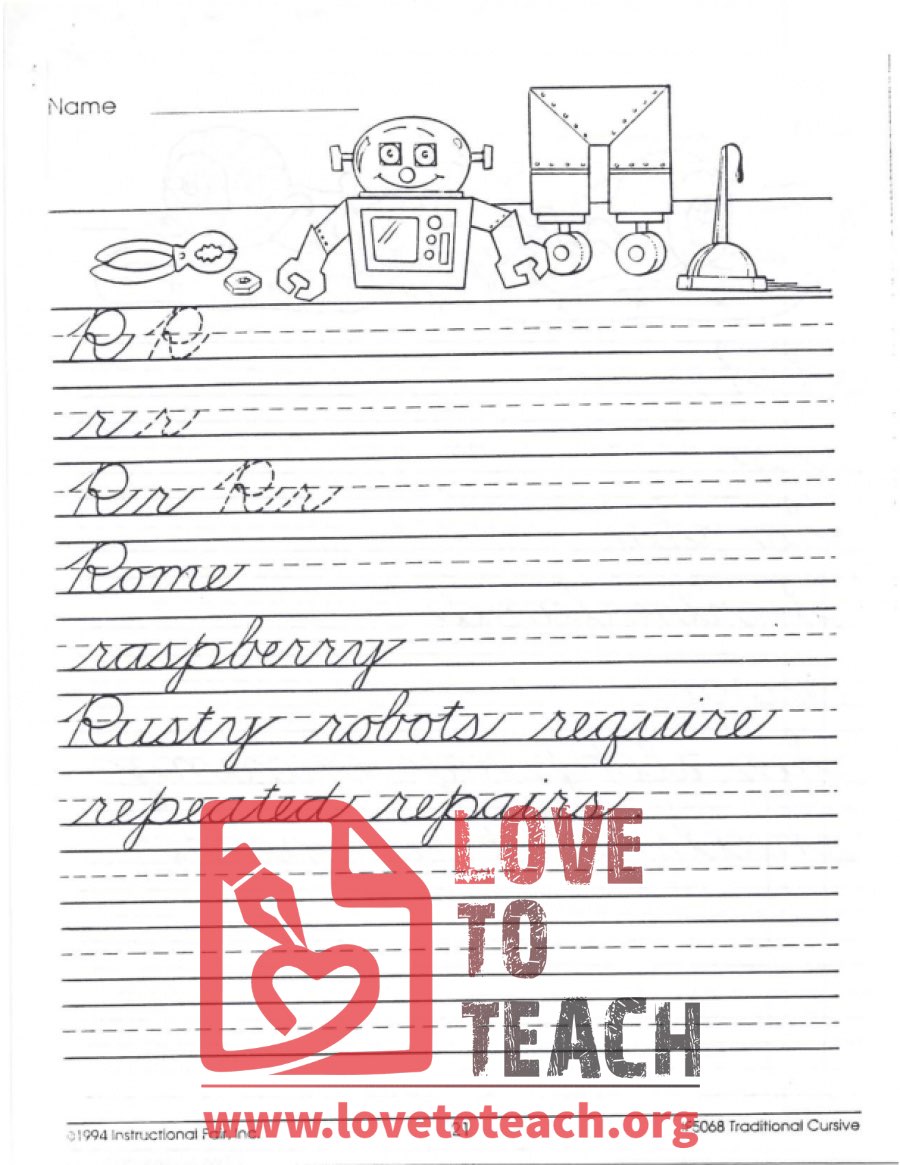 Name
R R
r r
Rr Rr
Rome
raspberry
Rusty robots require
repeated repairs
LOVE
TO
TEACH
www.lovetoteach.org
©1994 Instructional Fair, Inc.
21
IF5068 Traditional Cursive